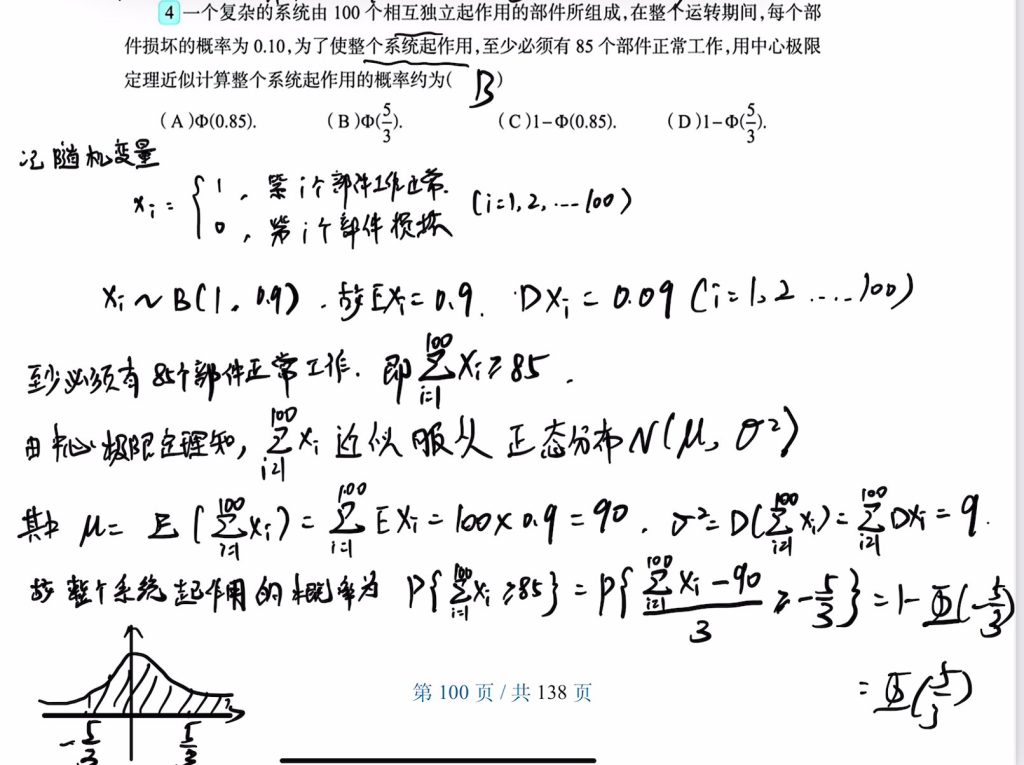 4 一个复杂的系统由 100 个相互独立起作用的部件所组成,在整个运转期间,每个部
件损坏的概率为 0.10,为了使整个系统起作用,至少必须有 85 个部件正常工作,用中心极限
定理近似计算整个系统起作用的概率约为( B )
(A)Φ(0.85). (B)Φ(5/3). (C)1-Φ(0.85). (D)1-Φ(5/3).
记随机变量
xi = { 1, 第i个部件工作正常. (i=1,2,…100)
0, 第i个部件损坏
Xi ~ B(1, 0.9). 故EXi = 0.9. DXi = 0.09 (i=1,2 ....100)
至少必须有85个部件正常工作. 即 ∑_{i=1}^{100} Xi ≥ 85.
由中心极限定理知, ∑_{i=1}^{100} Xi 近似服从正态分布N(μ, σ²)
其中 μ = E(∑_{i=1}^{100} Xi) = ∑_{i=1}^{100} EXi = 100×0.9 = 90. σ² = D(∑_{i=1}^{100} Xi) = ∑_{i=1}^{100} DXi = 9.
故整个系统起作用的概率为 P{∑_{i=1}^{100} Xi ≥ 85} = P{(∑_{i=1}^{100} Xi - 90)/3 ≥ -5/3} = 1 - Φ(-5/3)
= Φ(5/3)
-5/3 5/3
第 100 页 / 共 138 页